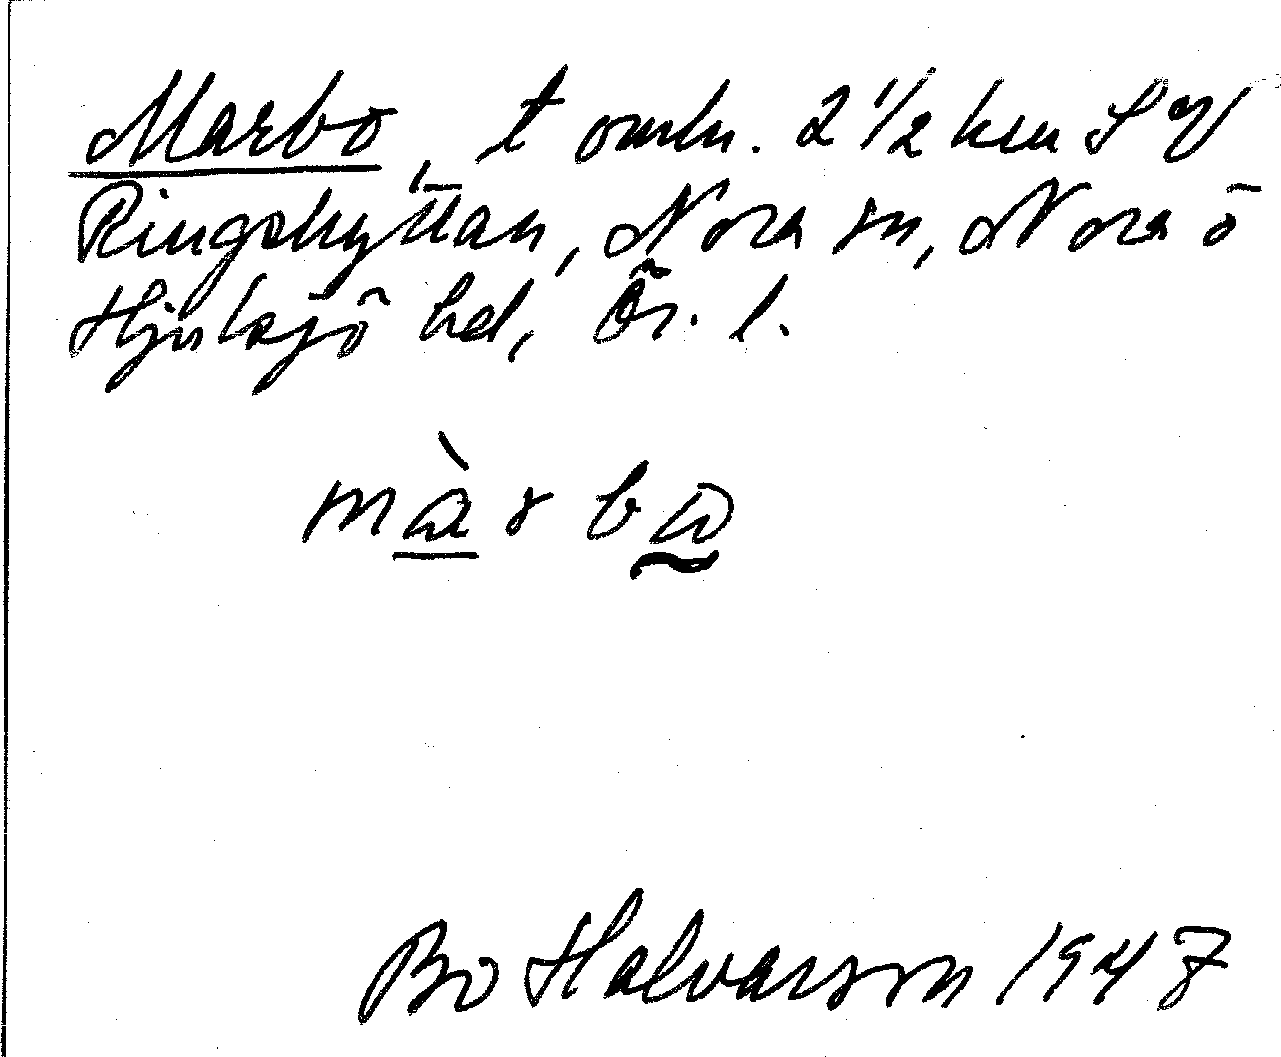 Marbo, t omkr. 2 1/2 km SV
Ringshyttan, Nora sn, Nora o
Hjulsjö hd, Ör. l.
màrbω
Bo Halvarson 1947